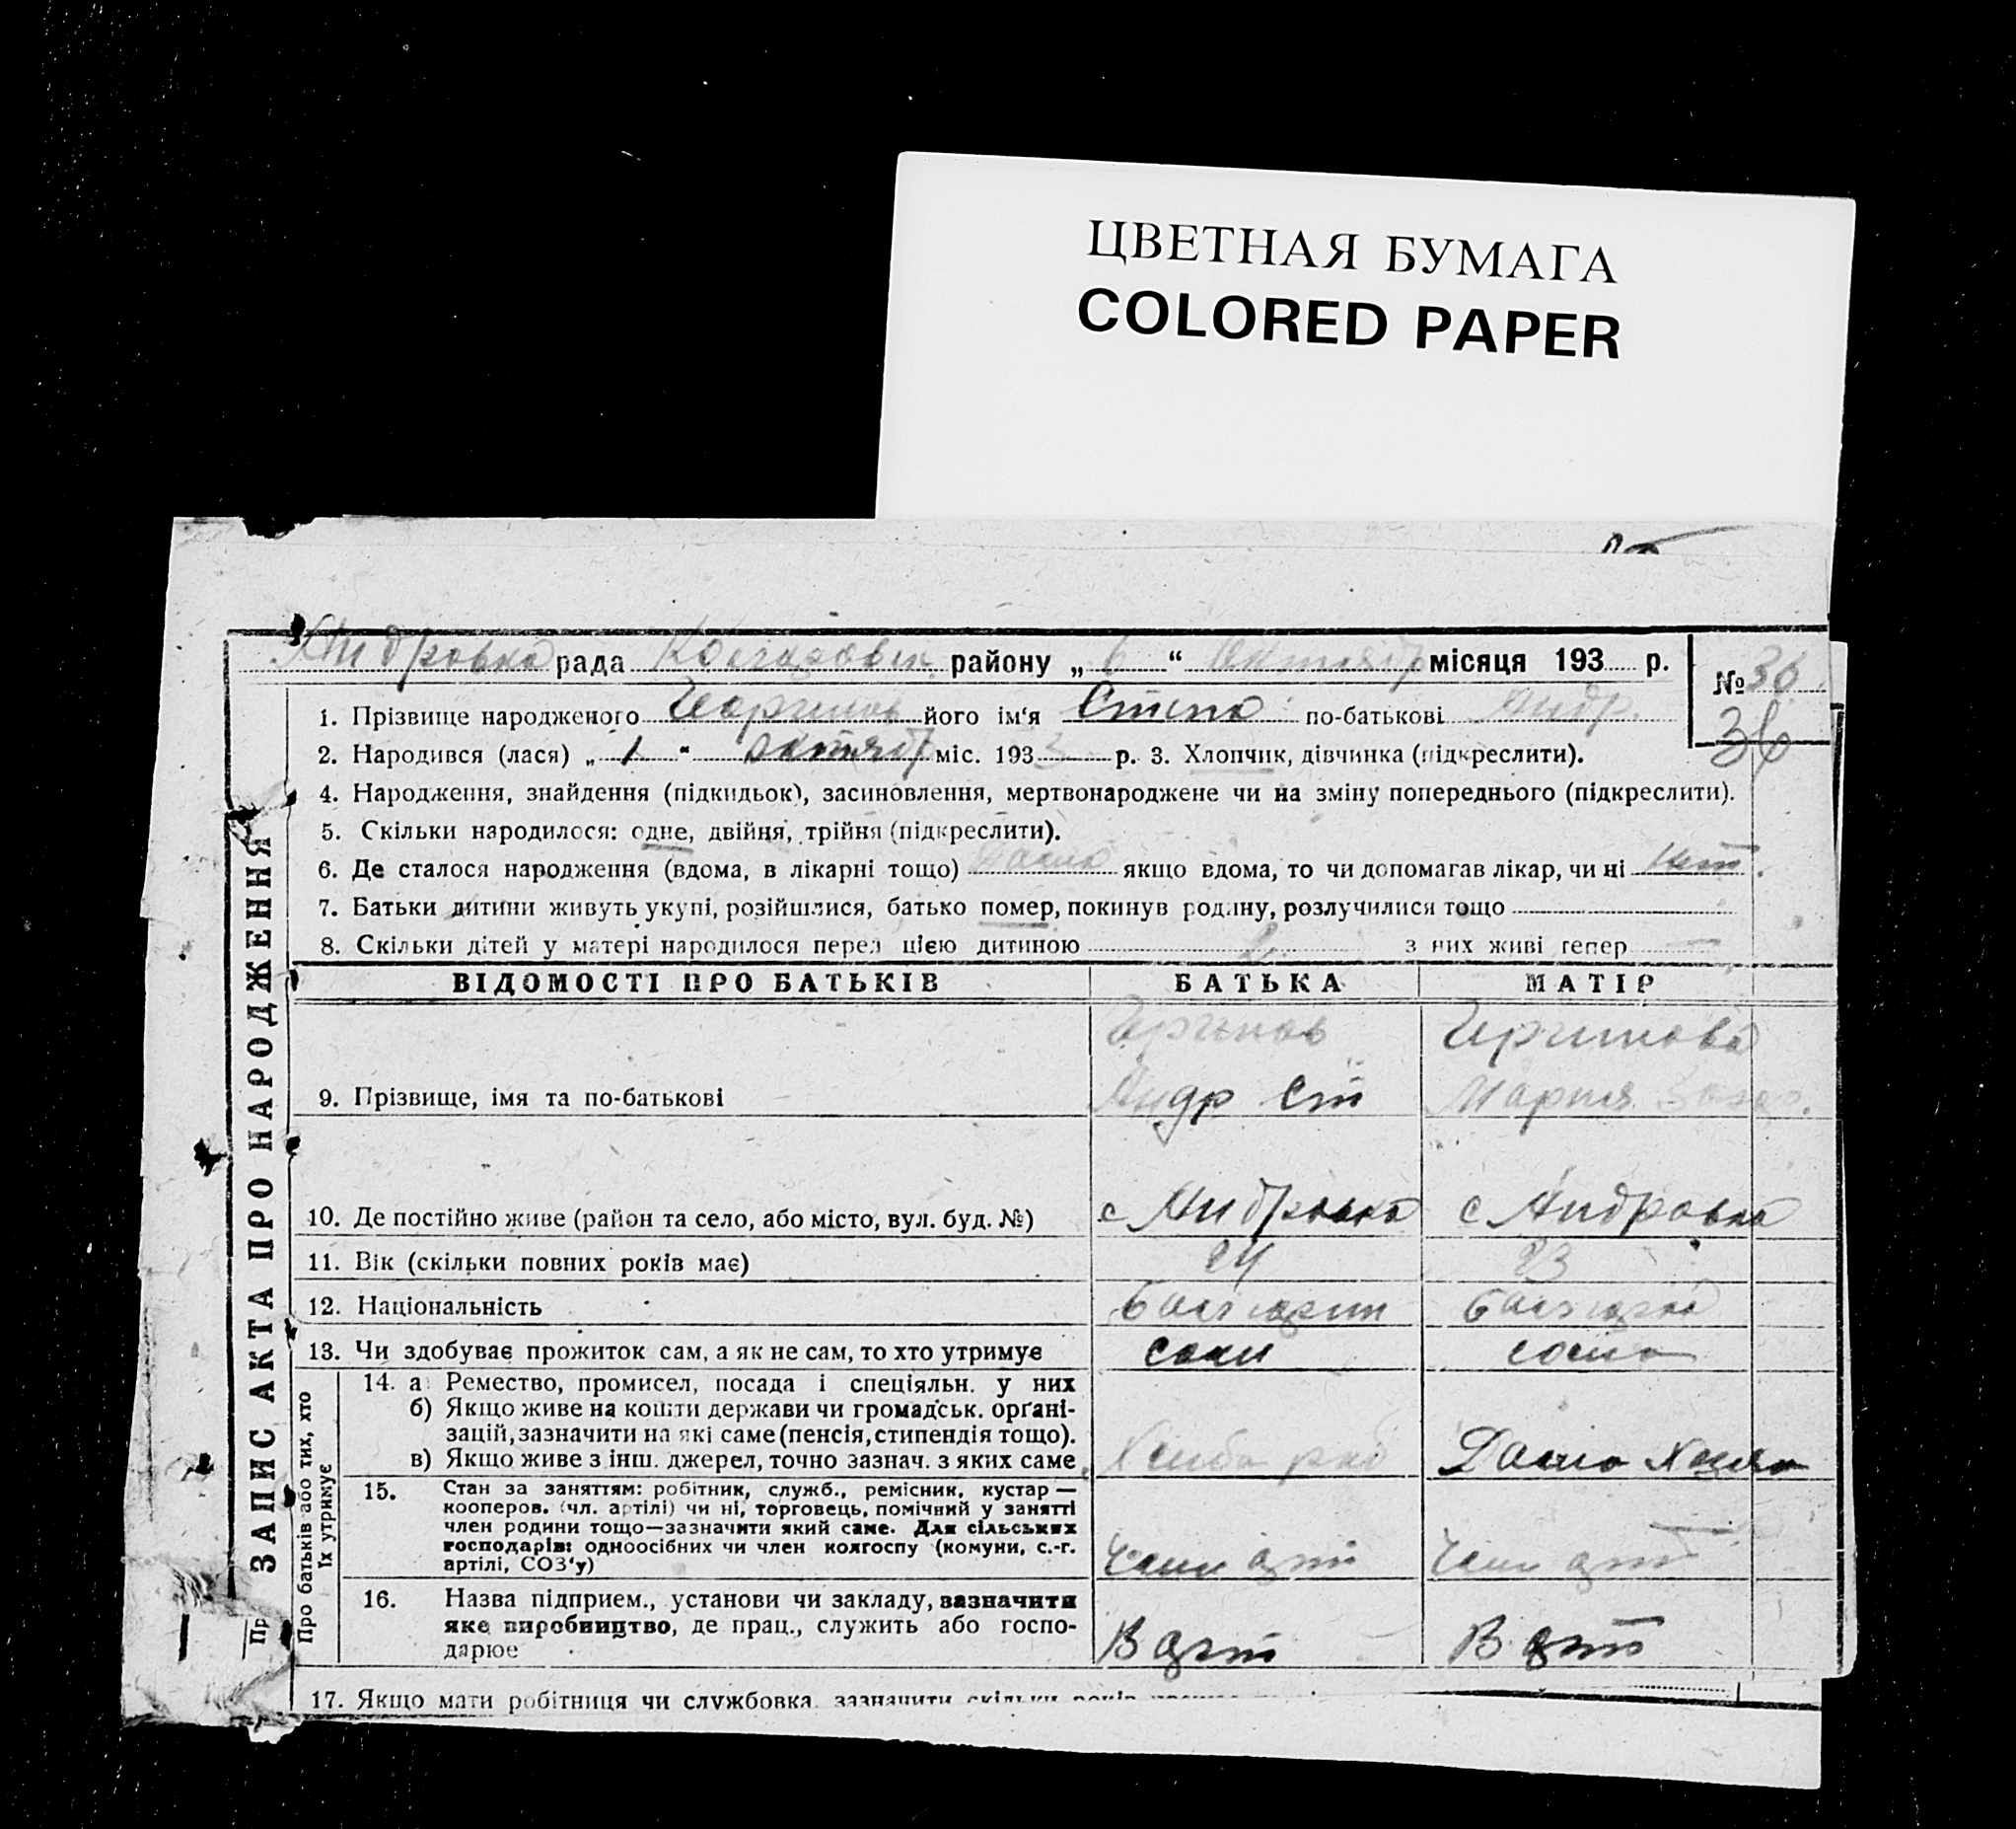 ЦВЕТНАЯ БУМАГА
COLORED PAPER
Андровка рада района „ 6 “ Октябр місяця 193 р.
№ 36
36
1. Прізвище народженого його ім‘я Степа по-батькові Андр.
2. Народився (лася) „ 1 “ октябр міс. 193 3 р. 3. Хлопчик, дівчинка (підкреслити).
4. Народження, знайдення (підкидьок), засиновлення, мертвонароджене чи на зміну попереднього (підкреслити).
5. Скільки народилося: одне, двійня, трійня (підкреслити).
6. Де сталося народження (вдома, в лікарні тощо) дома якщо вдома, то чи допомагав лікар, чи ні нет.
7. Батьки дитини живуть укупі, розійшлися, батько помер, покинув родину, розлучилися тощо
8. Скільки дітей у матері народилося перед цією дитиною 2 з них живі тепер —
ВІДОМОСТІ ПРО БАТЬКІВ БАТЬКА МАТІР
9. Прізвище, імя та по-батькові Андр Ст Мария
10. Де постійно живе (район та село, або місто, вул. буд. №) с Андровка с Андровка
11. Вік (скільки повних років має) 24 23
12. Національність болгарин болгарка
13. Чи здобуває прожиток сам, а як не сам, то хто утримує сам сама
14. а) Ремество, промисел, посада і спеціяльн. у них
б) Якщо живе на кошти держави чи громадськ. орґані-
зацій, зазначити на які саме (пенсія, стипендія тощо).
в) Якщо живе з інш. джерел, точно зазнач. з яких саме Хлебороб Домо хозяй
15. Стан за заняттям: робітник, служб., ремісник, кустар —
кооперов. (чл. артілі) чи ні, торговець, помічний у занятті
член родини тощо—зазначити який саме. Для сільських
господарів: одноосібних чи член колгоспу (комуни, с.-г.
артілі, СОЗ‘у) Член арт Член арт
16. Назва підприєм., установи чи закладу, зазначити
яке виробництво, де прац., служить або госпо-
дарює В арт В арт
17. Якщо мати робітниця чи службовка, зазначити скільки років
ЗАПИС АКТА ПРО НАРОДЖЕННЯ
Про батьків або тих, хто
їх утримує